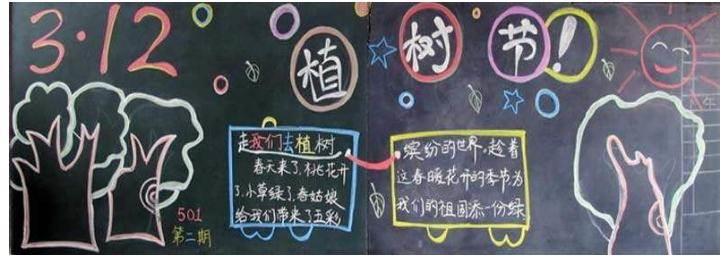 3·12
植树节!
走我们去植树
春天来了.桃花开
了,小草绿了,春姑娘
给我们带来了五彩
缤纷的世界.趁着
这春暖花开的季节为
我们的祖国添一份绿
501
第二期